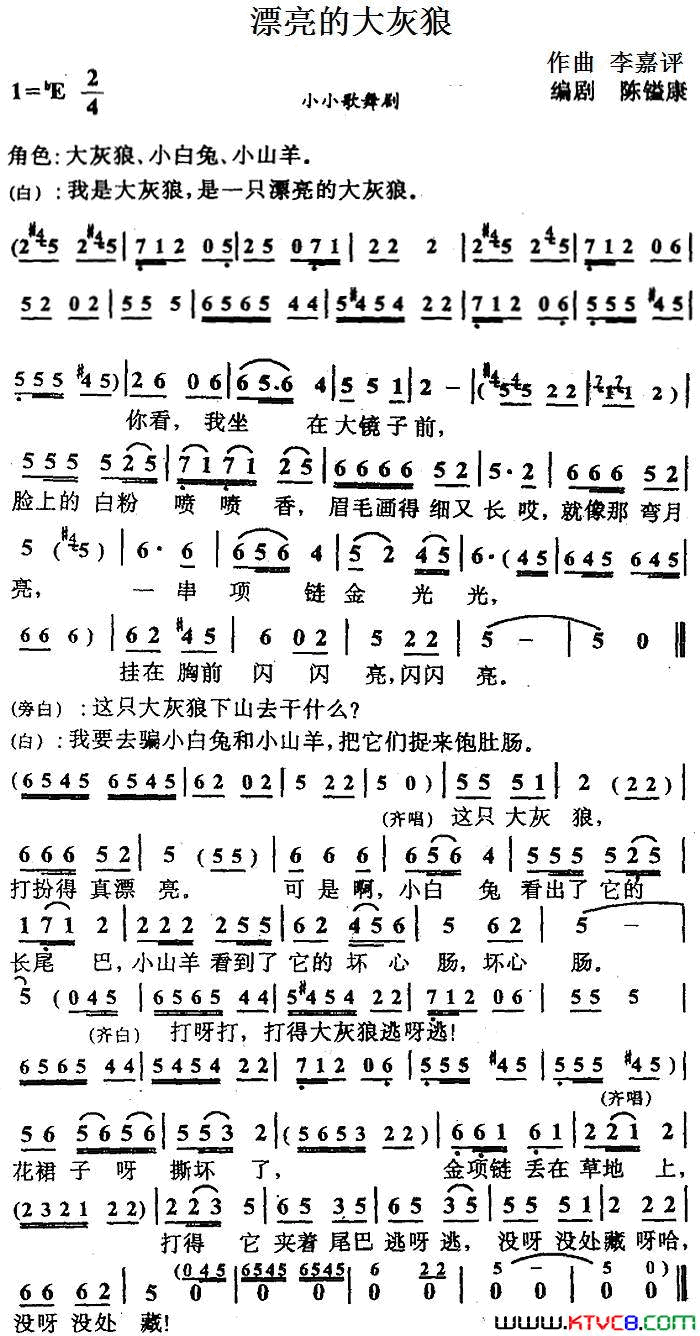 漂亮的大灰狼
作曲 李嘉评
1=♭E 2/4 小小歌舞剧 编剧 陈镒康
角色:大灰狼、小白兔、小山羊。
(白):我是大灰狼,是一只漂亮的大灰狼。
(2 #4 5 2 #4 5 | 7 1 2 0 5 | 2 5 0 7 1 | 2 2 2 | 2 #4 5 2 4 5 | 7 1 2 0 6 |
5 2 0 2 | 5 5 5 | 6 5 6 5 4 4 | 5 #4 5 4 2 2 | 7 1 2 0 6 | 5 5 5 #4 5 |
5 5 5 #4 5) | 2 6 0 6 | 6 5·6 4 | 5 5 1 | 2 - | (#4 5 4 5 5 2 2 | 2 1 2 1 1 2) |
你看, 我坐 在大镜子前,
5 5 5 5 2 5 | 7 1 7 1 2 5 | 6 6 6 6 5 2 | 5· 2 | 6 6 6 5 2 |
脸上的 白粉 喷 喷 香, 眉毛画得 细又 长 哎, 就像那 弯月
5 (#4 5) | 6· 6 | 6 5 6 4 | 5 2 4 5 | 6· (4 5 | 6 4 5 6 4 5 |
亮, 一 串 项 链 金 光 光,
6 6 6) | 6 2 #4 5 | 6 0 2 | 5 2 2 | 5 - | 5 0 ‖
挂在 胸前 闪 闪 亮,闪闪 亮。
(旁白):这只大灰狼下山去干什么?
(白):我要去骗小白兔和小山羊,把它们捉来饱肚肠。
(6 5 4 5 6 5 4 5 | 6 2 0 2 | 5 2 2 | 5 0) | 5 5 5 1 | 2 (2 2) |
(齐唱) 这只 大灰 狼,
6 6 6 5 2 | 5 (5 5) | 6 6 6 | 6 5 6 4 | 5 5 5 5 2 5 |
打扮得 真漂 亮。 可 是 啊, 小白 兔 看出了 它的
1 7 1 2 | 2 2 2 2 5 5 | 6 2 4 5 6 | 5 6 2 | 5 - |
长尾 巴, 小山羊 看到了 它的 坏 心 肠, 坏心 肠。
5 (0 4 5 | 6 5 6 5 4 4 | 5 #4 5 4 2 2 | 7 1 2 0 6 | 5 5 5 |
(齐白) 打呀打, 打得大灰狼逃呀逃!
6 5 6 5 4 4 | 5 4 5 4 2 2 | 7 1 2 0 6 | 5 5 5 #4 5 | 5 5 5 #4 5) |
(齐唱)
5 6 5 6 5 6 | 5 5 3 2 | (5 6 5 3 2 2) | 6 6 1 6 1 | 2 2 1 2 |
花裙 子 呀 撕坏 了, 金项链 丢在 草地 上,
(2 3 2 1 2 2) | 2 2 3 5 | 6 5 3 5 | 6 5 3 5 | 5 5 5 1 | 2 2 2 2 |
打得 它 夹着 尾巴 逃呀 逃, 没呀 没处 藏呀哈,
(0 4 5 | 6 5 4 5 6 4 5 4 5 | 6 2 2 | 5 - | 5 0)
6 6 6 2 | 5 0 | 0 0 | 0 0 | 0 0 | 0 0 ‖
没呀 没处 藏!
www.KTVC8.com